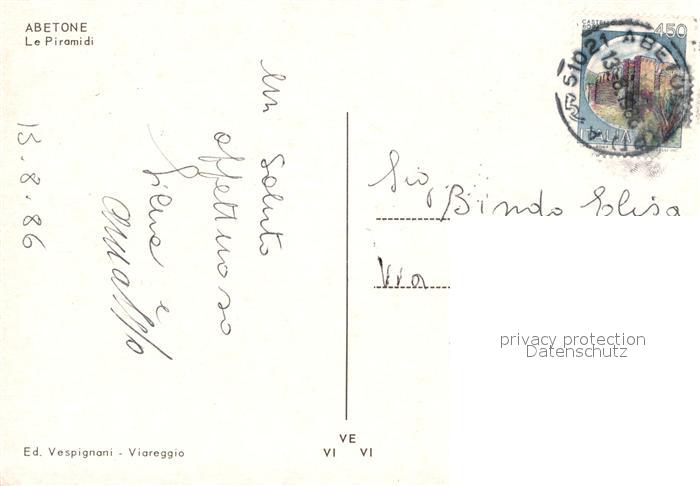 ABETONE
Le Piramidi
15.8.86
Un saluto
affettuoso
e
CASTELLO
450
51021 ABETONE
ITALIA
Sig. Bindo Elisa
Via
privacy protection
Datenschutz
Ed. Vespignani - Viareggio
VE
VI VI